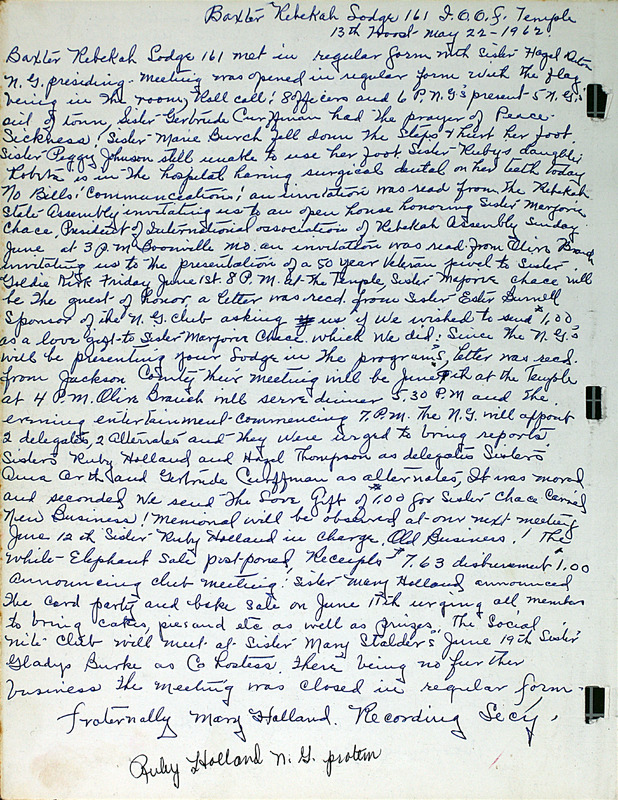 Baxter Rebekah Lodge 161 I.O.O.F. Temple
13th Hoost May 22-1962
Baxter Rebekah Lodge 161 met in regular form with Sister Hazel
N.G. presiding. Meeting was opened in regular form with the flag
being in the room, Roll call! 8 officers and 6 P.N.G.'s present 5 N.G.'s
out of town, Sister Gertrude Curffman had the prayer of Peace.
Sickness! Sister Marie Burch fell down the steps & hurt her foot.
Sister Peggy Johnson still unable to use her foot. Sister Ruby's daughter
Roberta is in the hospital having surgical dental on her teeth today
No Bills! Communications! an invitation was read from the Rebekah
State Assembly invitating us to an open house honoring Sister Marjorie
Chace President of International association of Rebekah Assembly Sunday
June at 3 P.M Boonville Mo. an invitation was read from Olive Branch
invitating us to the presentation of a 50 year Veteran jewel to Sister
Goldie Kirk Friday June 1st. 8 P.M. at the Temple, Sister Marjorie Chace will
be the guest of honor, a letter was recd. from Sister Ester Burnell
Sponsor of the N.G. Club asking us if we wished to send $1.00
as a love gift to Sister Marjorie Chace which we did. Since the N.G.'s
will be presenting your Lodge in the program's, letter was recd.
from Jackson County their meeting will be June at the Temple
at 4 P.M. Olive Branch will serve dinner 5.30 P.M and the
evening entertainment commencing 7. P.M. the N.G. will appoint
2 delegates, 2 alternates and they were urged to bring reports.
Sisters Ruby Holland and Hazel Thompson as delegates Sisters
Orth and Gertrude Curffman as alternates, It was moved
and seconded we send the Love Gift of $1.00 for Sister Chace Carried
New Business! Memorial will be observed at our next meeting
June 12th Sister Ruby Holland in charge. Old Business! The
White-Elephant Sale postponed, Receipts $7.63 disbursement $1.00
announcing club meeting! Sister Mary Holland, announced
the card party and bake sale on June 11th urging all members
to bring cakes, pies and etc as well as prizes. The Social
nite Club will meet at Sister Mary Stalder's, June 19th Sister
Gladys Burke as Co hostess. There being no further
business the meeting was closed in regular form.
Fraternally Mary Holland. Recording Secy.
Ruby Holland N.G. protem